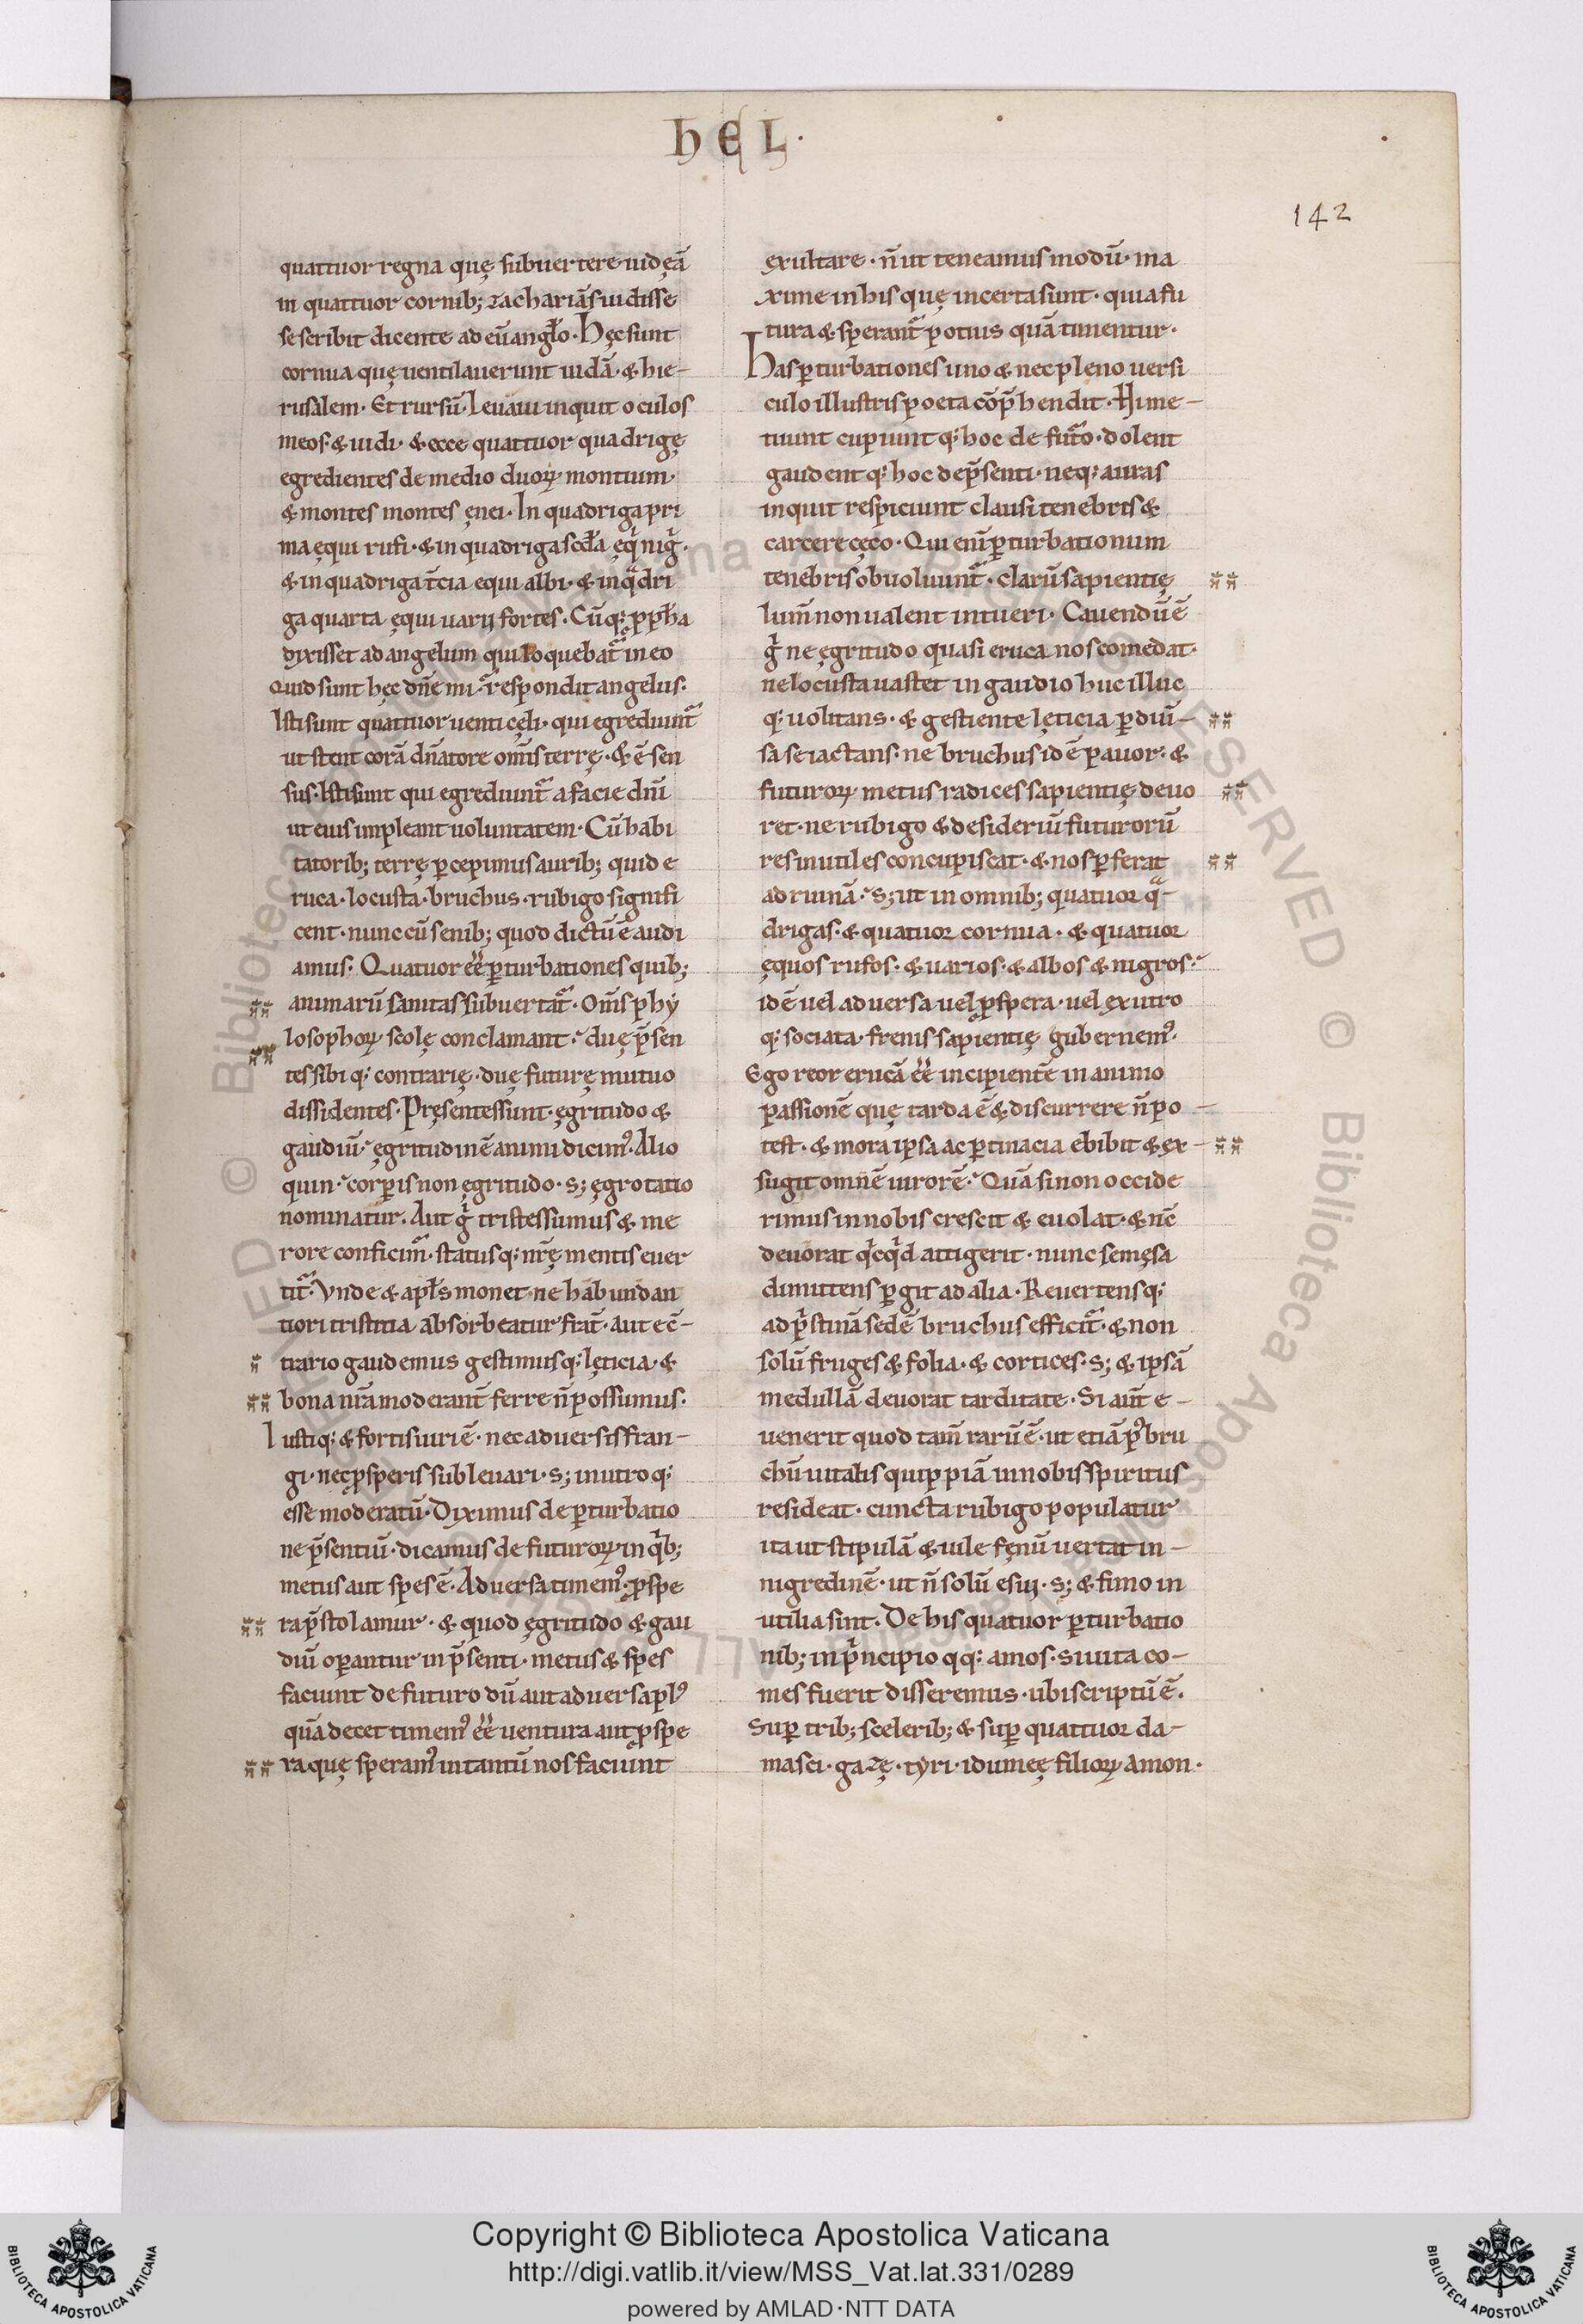 hEL·
142
quattuor regna quę subuertere uideā
in quattuor cornib; zachariā suidisse
se scribit dicente ad eū angl̄o· Hęc sunt
cornua quę uentilauerunt iudā· & hie-
rusalem· Et rursū· Leuaui inquit oculos
meos· & uidi· & ecce quattuor quadrigę
egredientes de medio duoꝝ montium·
& montes montes ęnei· In quadriga pri
ma ęqui rufi· & in quadriga scd̄a ęq̇ nig̃·
& in quadriga t̄cia equi albi· & in qᷓdri
ga quarta ęqui uarij fortes· Cūq; ꝓph̄a
dixisset ad angelum qui loquebat᷑ in eo
Quid sunt hęc dn̄e mi· respondit angelus·
Isti sunt quattuor uenti cęli· qui egrediunt᷑
ut stent corā dn̄atore om̄is terrę· & ē sen
sus· Isti sunt qui egrediunt᷑ a facie dn̄i
ut eius impleant uoluntatem· Cū habi
tatorib; terrę ꝑcepimus aurib; quid e
ruca· locusta· bruchus· rubigo signifi
cent· nunc cū senib; quod dictū ē audi
amus· Quatuor ēē ꝑturbationes quib;
animarū sanitas subuertat᷑· Om̄s phy
losophoꝝ scolę conclamant· duę p̄sen
tes sibi q; contrarię· duę futurę mutuo
dissidentes· Pręsentes sunt· ęgritudo &
gaudiū· ęgritudinē animi dicim᷒· Alio
quin· corꝑis non ęgritudo· s; ęgrotatio
nominatur. Aut g̊ tristes sumus & me
rore conficim᷑· status q; nr̄ę mentis euer
tit᷑· Vnde & apl̄s monet· ne habundan
tiori tristitia absorbeatur frat̄· Aut e c̄-
trario gaudemus gestimusq; lęticia· &
bona nr̄a moderant᷑ ferre n̄ possumus·
Iustiq; & fortis uiri ē· nec aduersis fran-
gi· nec ꝓsperis subleuari· s; in utroq;
esse moderatū· Diximus de ꝑturbatio
ne p̄sentiū· dicamus de futuroꝝ in q̇b;
metus aut spes ē· Aduersa timem᷒· ꝓspe
ra p̄stolamur· & quod ęgritudo & gau
diū oꝑantur in p̄senti· metus & spes
faciunt de futuro dū aut aduersa pl᷒
quā decet timem᷒ ēē uentura aut ꝓspe
ra quę speram᷒ in tantū nos faciunt
exultare· n̄ ut teneamus modū· ma
xime in his quę incerta sunt· quia fu
tura & sperant᷑ potius quā timentur·
Has ꝑturbationes uno & nec pleno uersi
culo illustris poeta cōp̄hendit· Hi me-
tuunt cupiunt q; hoc de fut᷑o· dolent
gaudent q; hoc de p̄senti· neq; auras
inquit respiciunt clausi tenebris &
carcere cęco· Qui enī ꝑturbationum
tenebris obuoluunt᷑· clarū sapientię
lum̄ non ualent intueri· Cauendū ē
g̊ ne ęgritudo quasi eruca nos comedat·
ne locusta uastet in gaudio huc illuc
q; uolitans· & gestiente lęticia ꝑ diuī-
sa se iactans· ne bruchus id ē pauor· &
futuroꝝ metus radices sapientię deuo
ret· ne rubigo & desideriū futurorū
res inutiles concupiscat· & nos ꝑferat
ad ruinā· s; ut in omnib; quatuor qᷓ-
drigas· & quatuor cornua· & quatuor
ęquos rufos· & uarios· & albos & nigros·
id ē uel aduersa uel ꝓspera· uel ex utro
q; sociata· frenis sapientię gubernem᷒·
Ego reor erucā ēē incipientē in animo
passionē quę tarda ē & discurrere n̄ po-
test· & mora ipsa ac ꝑtinacia ebibit & ex-
sugit omnē uirorē· Quā si non occide
rimus in nobis crescit & euolat· & nc̄
deuorat q̇cq̇d attigerit· nunc semęsa
dimittens ꝑgit ad alia· Reuertensq;
ad ṗstinā sedē bruchus efficit᷑· & non
solū fruges & folia· & cortices· s; & ipsā
medullā deuorat tarditate· Si aūt e-
uenerit quod tam̄ rarū ē· ut etiā p᷒ bru
chū uitalis quippiā in nobis spiritus
resideat· cuncta rubigo populatur
ita ut stipulā & uile fęnū uertat in-
nigredinē· ut n̄ solū esui· s; & fimo in
utilia sint· De his quatuor ꝑturbatio
nib; in ṗncipio qq; amos· si uita co-
mes fuerit disseremus· ubi scriptū ē·
Suꝑ trib; scelerib; & suꝑ quattuor da-
masci· gazę· tyri· idumeę filioꝝ amon·
Copyright © Biblioteca Apostolica Vaticana
http://digi.vatlib.it/view/MSS_Vat.lat.331/0289
powered by AMLAD·NTT DATA
BIBLIOTECA APOSTOLICA VATICANA
BIBLIOTECA APOSTOLICA VATICANA